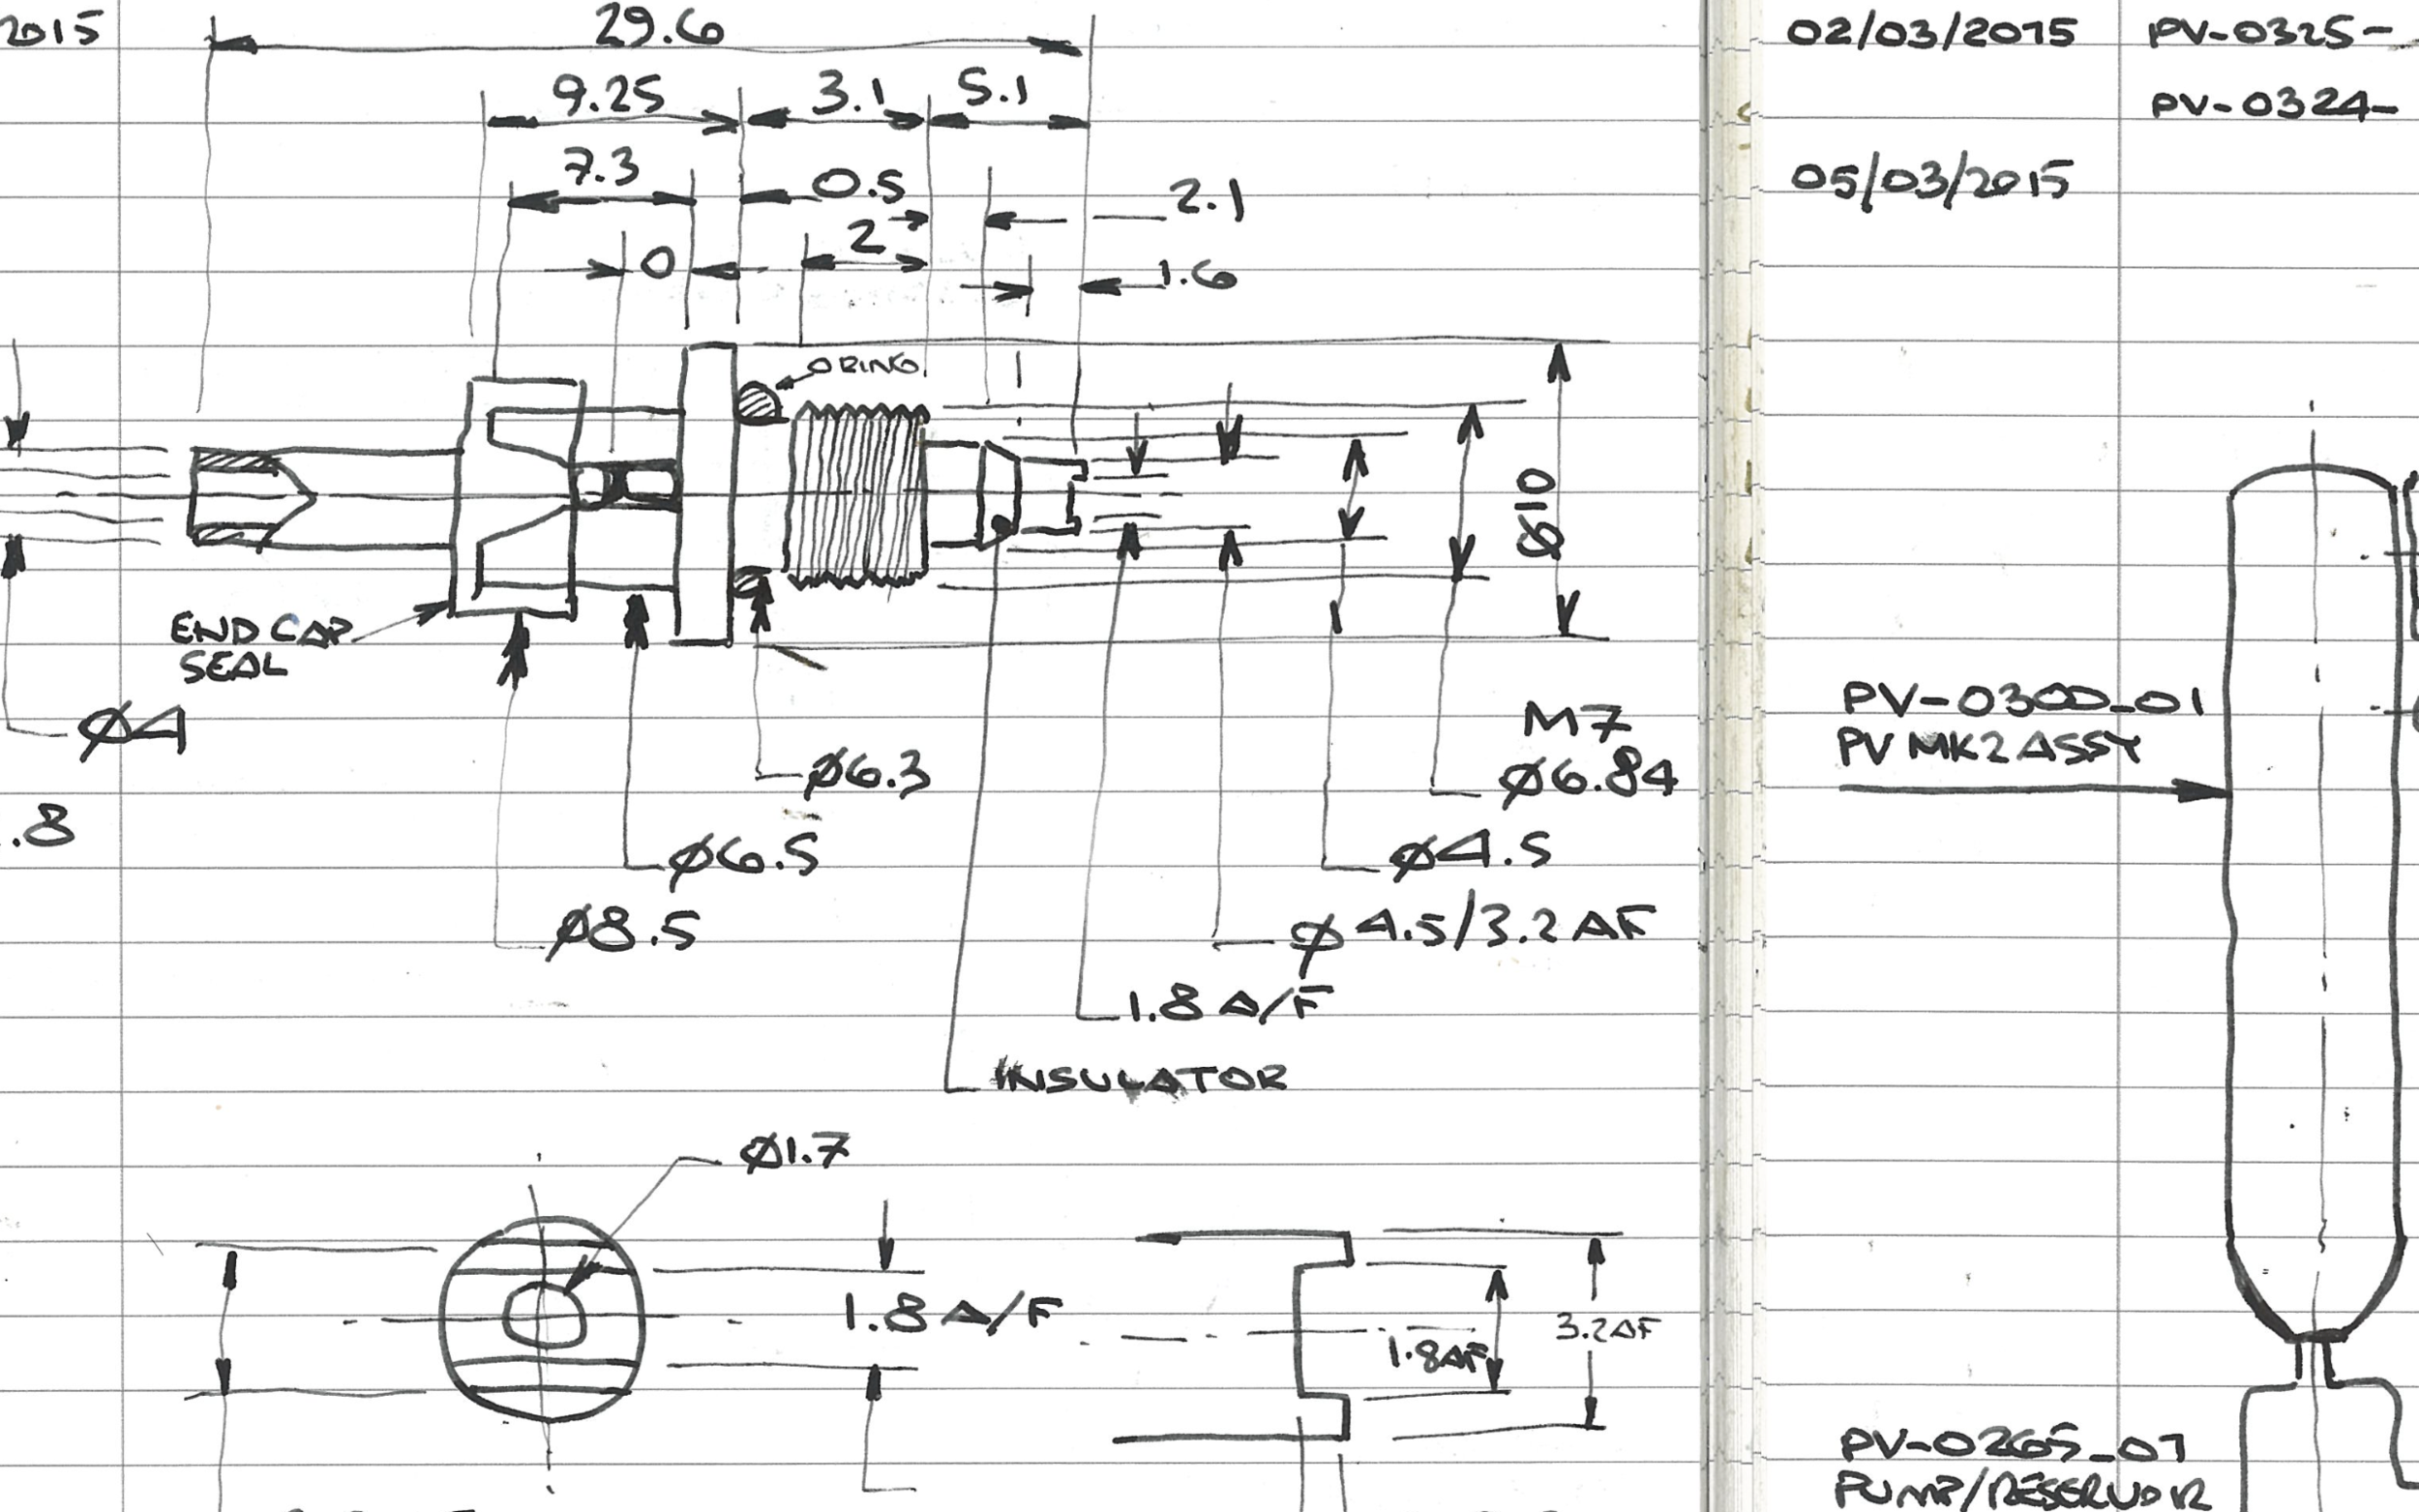 2015
29.6
9.25
3.1
5.1
7.3
0.5
2.1
2
0
1.6
O RING
Ø10
END CAP
SEAL
Ø4
M7
Ø6.3
Ø6.84
.8
Ø6.5
Ø4.5
Ø8.5
Ø4.5/3.2 AF
1.8 A/F
INSULATOR
Ø1.7
1.8 A/F
1.8AF
3.2AF
02/03/2015
PV-0325-
PV-0324-
05/03/2015
PV-0300_01
PV MK2 ASSY
PV-0265_01
PUMP/RESERVOIR